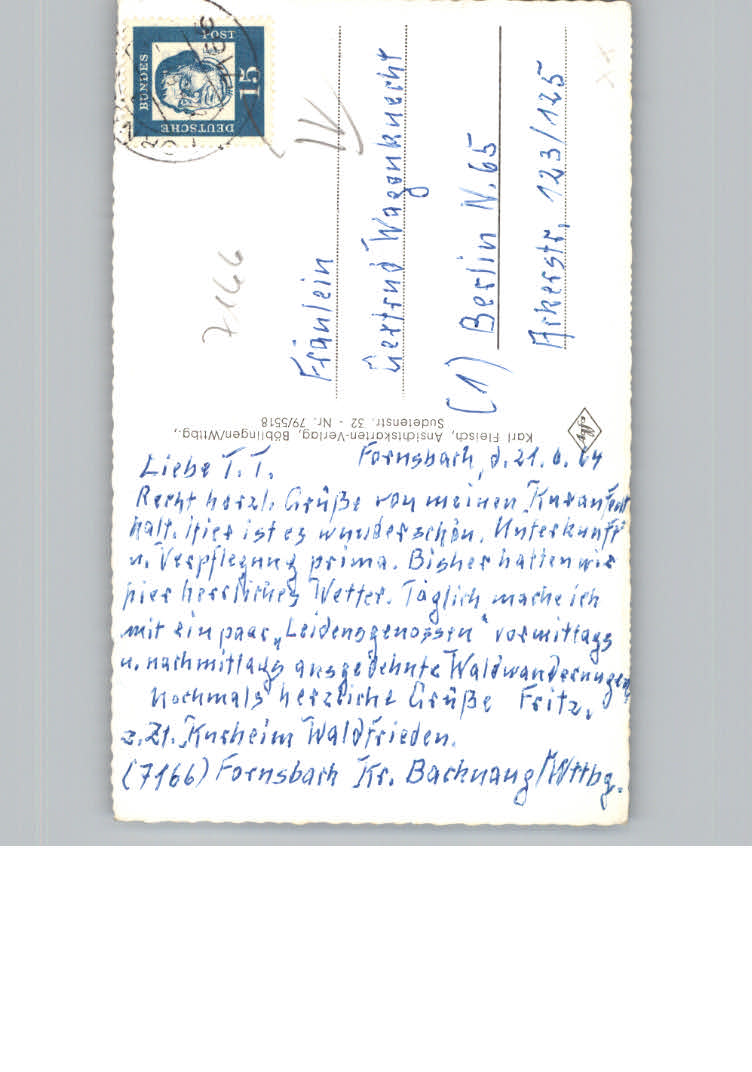 Fornsbach, d. 21.6.64
Liebe T.T.
Recht herzl. Grüße von meinen Kuraufent
halt. Hier ist es wunderschön. Unterkunft
u. Verpflegung prima. Bisher hatten wir
hier herrliches Wetter. Täglich mache ich
mit ein paar „Leidensgenossen" vormittags
u. nachmittags ausgedehnte Waldwanderungen.
Nochmals herzliche Grüße Fritz.
z.Zt. Kurheim Waldfrieden.
(7166) Fornsbach Kr. Backnang/Wttbg.
Karl Fleisch, Ansichtskarten-Verlag, Böblingen/Wttbg.,
Sudetenstr. 32 - Nr. 79/5518
Fräulein
Gertrud Wagenknecht
(1) Berlin N. 65
Ackerstr. 123/125
7166
DEUTSCHE
BUNDES
POST
15